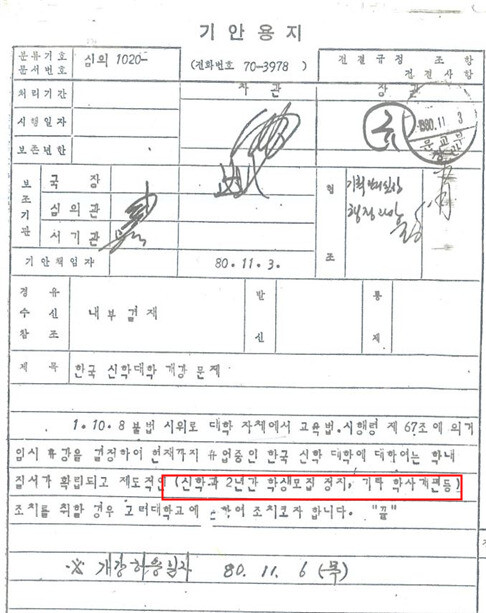 기안용지
분류기호 문서번호 심의 1020- (전화번호 70-3978) 전결규정 조 항 전결사항
처리기간 차관 장관
시행일자
보존년한
1980.11.3
문교부 장관
보조기관 국장 협조
심의관
서기관
기획관리실장
행정
기안책임자 80.11.3.
경유 수신 참조 내부결재 발신 통제
제목 한국 신학대학 개강 문제
1. 10.8 불법 시위로 대학 자체에서 교육법.시행령 제 67조에 의거
임시 휴강을 결정하여 현재까지 휴업중인 한국 신학 대학에 대하여는 학내
질서가 확립되고 제도적인 (신학과 2년간 학생모집 정지, 기타 학사개편등)
조치를 취할 경우 그 대학교에 조치코자 합니다. "끝"
※ 개강허용일자 80. 11. 6 (목)